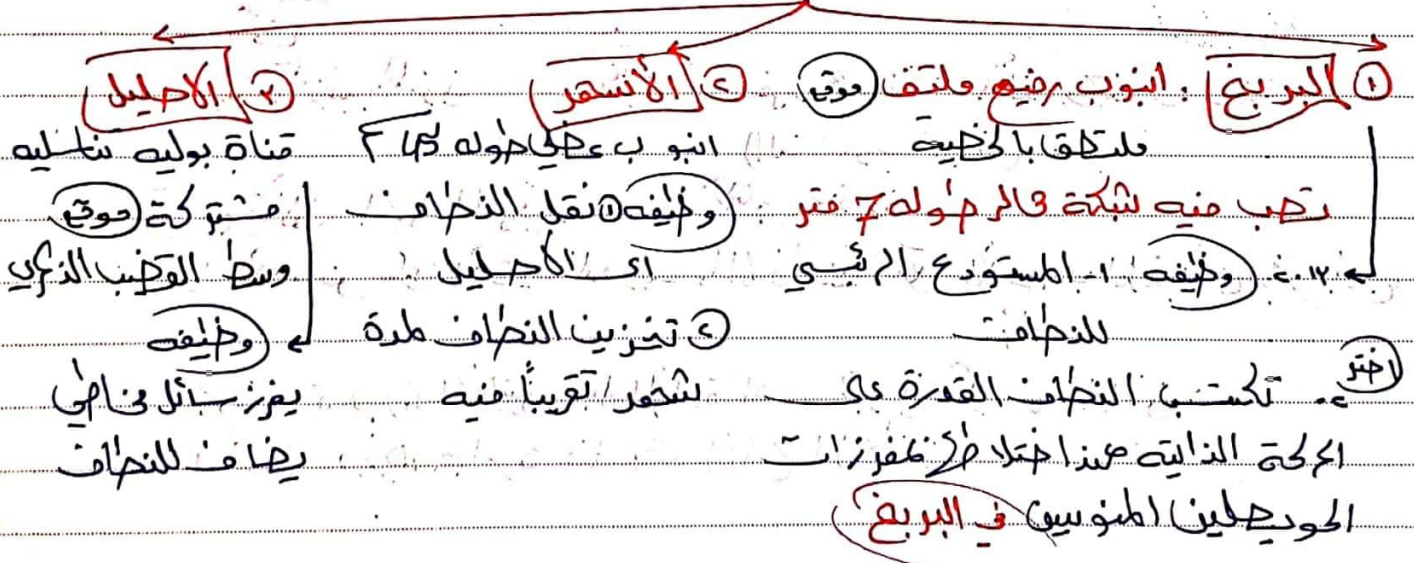 ① البربخ : انبوب رفيع ملتف موقع
ملتصق بالخصية
تصب فيه شبكة هالر طوله 7 متر
٢٠١٢ وظيفه ١- المستودع الرئيسي
للنطاف
اختر ٢- تكتسب النطاف القدرة على
الحركة الذاتية عند اختلاطها بمفرزات
الحويصلين المنويين في البربخ
② الأسهر
انبوب عضلي طوله
وظيفه ① نقل النطاف
الى الاحليل
② تخزين النطاف لمدة
شهر تقريباً فيه
③ الاحليل
قناة بوليه تناسليه
مشتركة موقع
وسط القضيب الذكري
وظيفه
يفرز سائل مخاطي
يضاف للنطاف